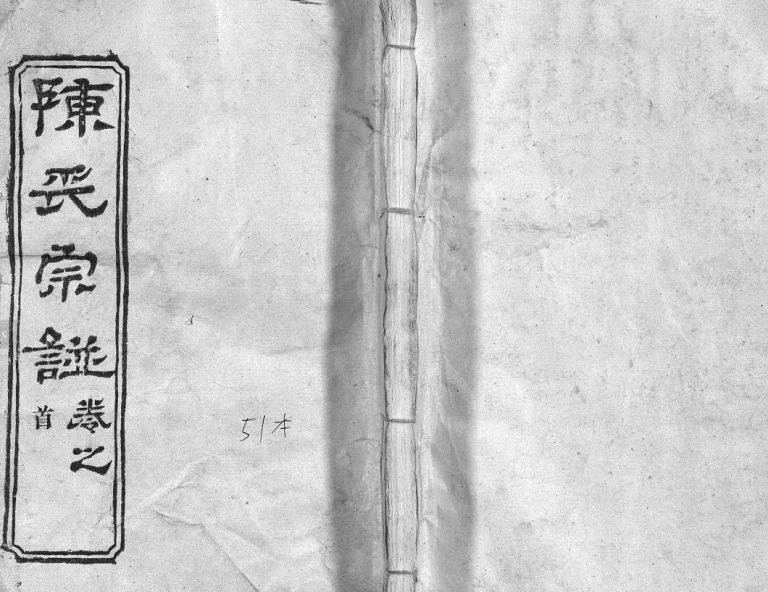 陳氏宗譜卷之
首
51本